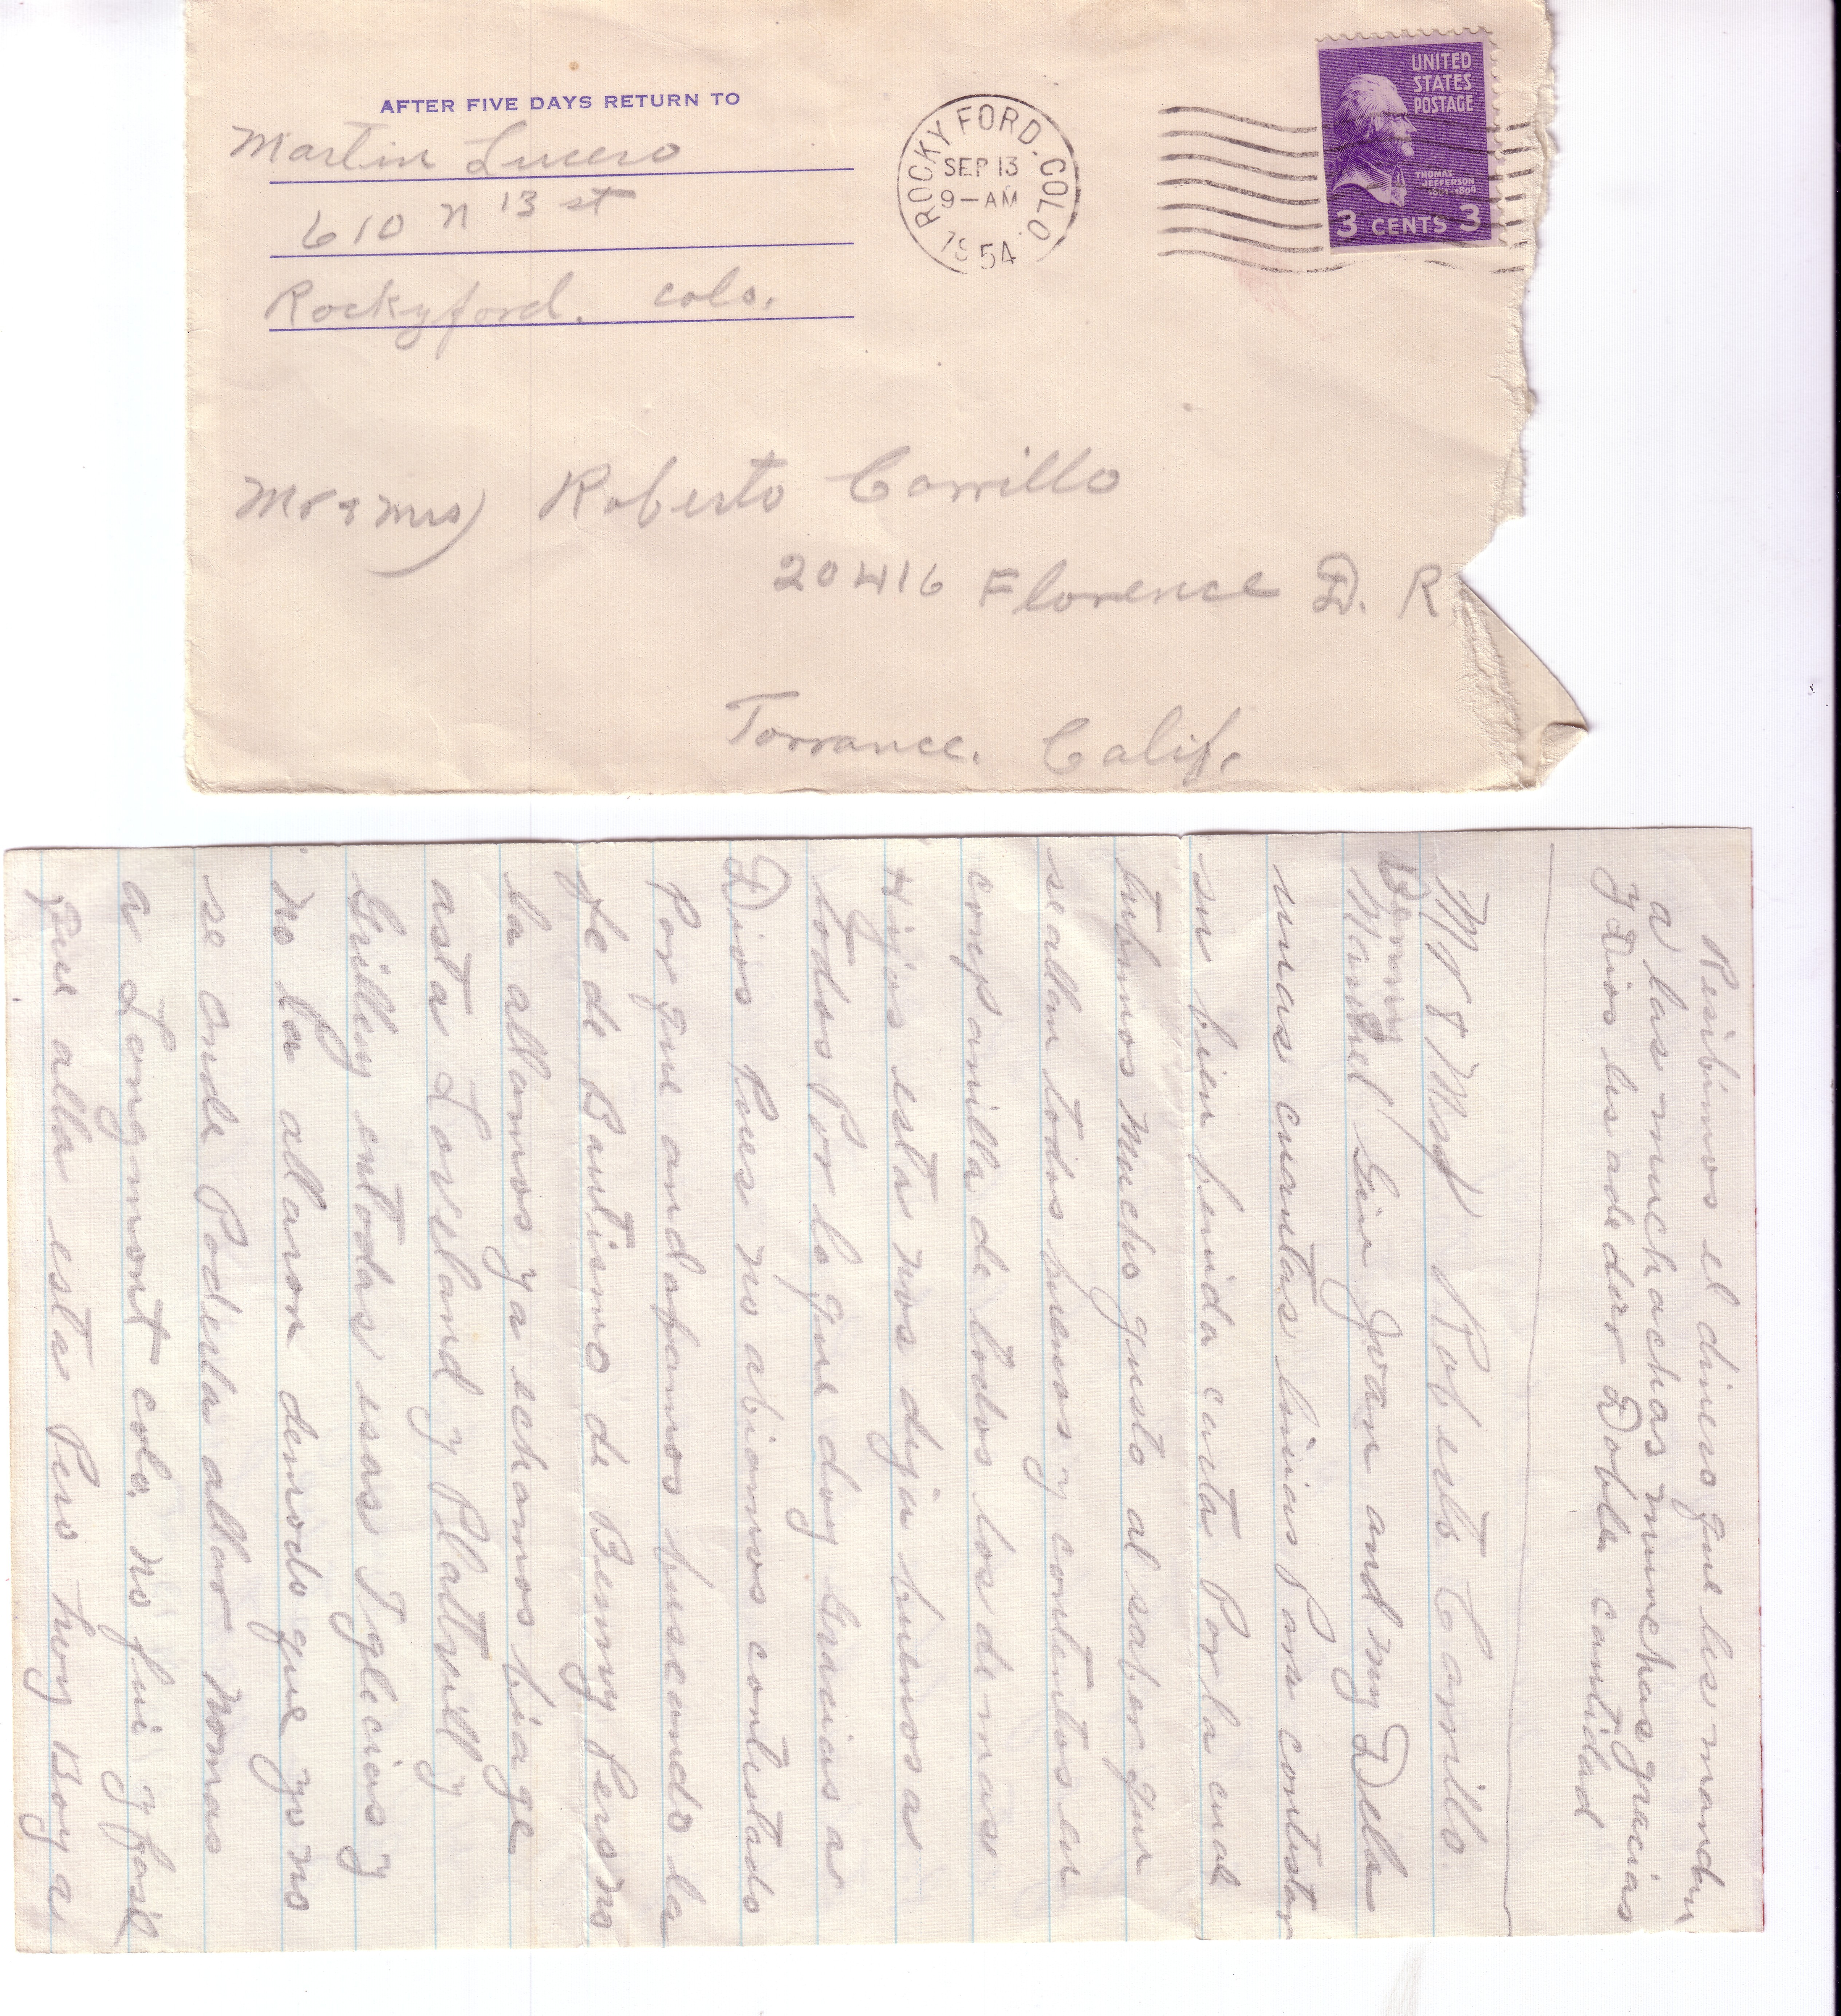 AFTER FIVE DAYS RETURN TO
Martin Lucero
610 n 13 st
Rockyford. colo.
ROCKY FORD. COLO.
SEP 13
9-AM
1954
UNITED
STATES
POSTAGE
THOMAS
JEFFERSON
1801-1809
3 CENTS 3
Mr & Mrs) Roberto Carrillo
20416 Florence D. R.
Torrance. Calif.
Resibimos el dinero que les mandan
a las muchachas munchas gracias
y Dios les ade dar Doble cantidad
Mr & Mrs Roberto Carrillo.
Benny
Manuel Gin Joan and my Dela
unas cuantas linias para contestar
su bien benida carta Por la cual
tubimos mucho gusto al saber que
se allan todos buenos y contentos en
companilla de todos los de mas
Hijos estas nos deja buenos a
todos Por lo que doy Gracias a
Dios Pues no abiamos contestado
Por que andafamos buscando la
fe de Bautismo de Benny Pero no
la allamos ya echamos biage
asta Loveland y Plattvill y
Grilley entodas esas Iglecias y
no la allaron demodo que yo no
se onde Podesta allar nomas
a Longmont colo. no fui y fasil
que alla estas Pero hoy Boy a